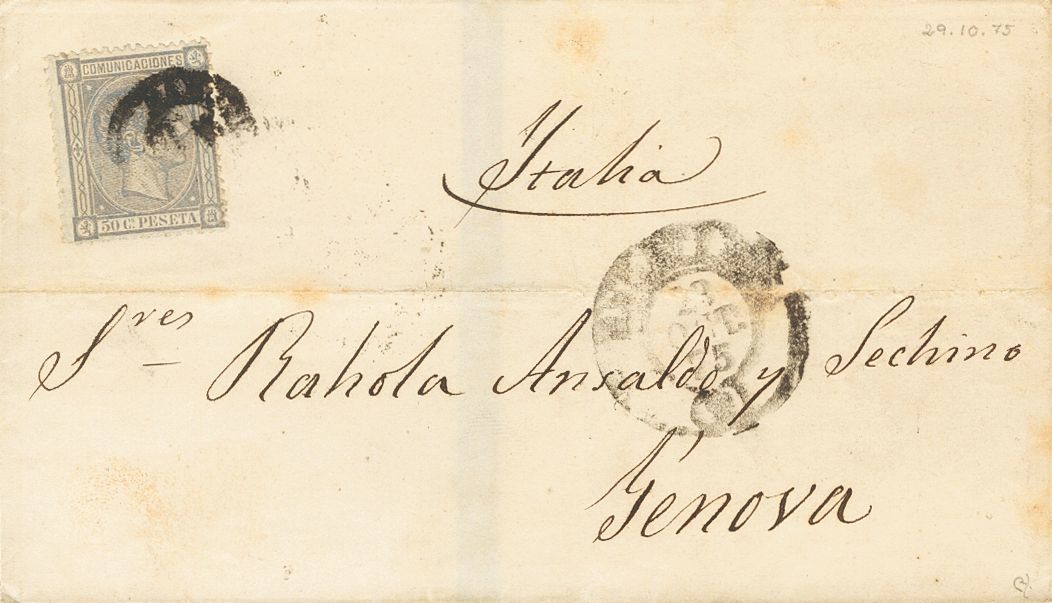 29.10.75
COMUNICACIONES
50 Cs PESETA
Italia
Sres Rahola Ansaldo y Sechino
Génova